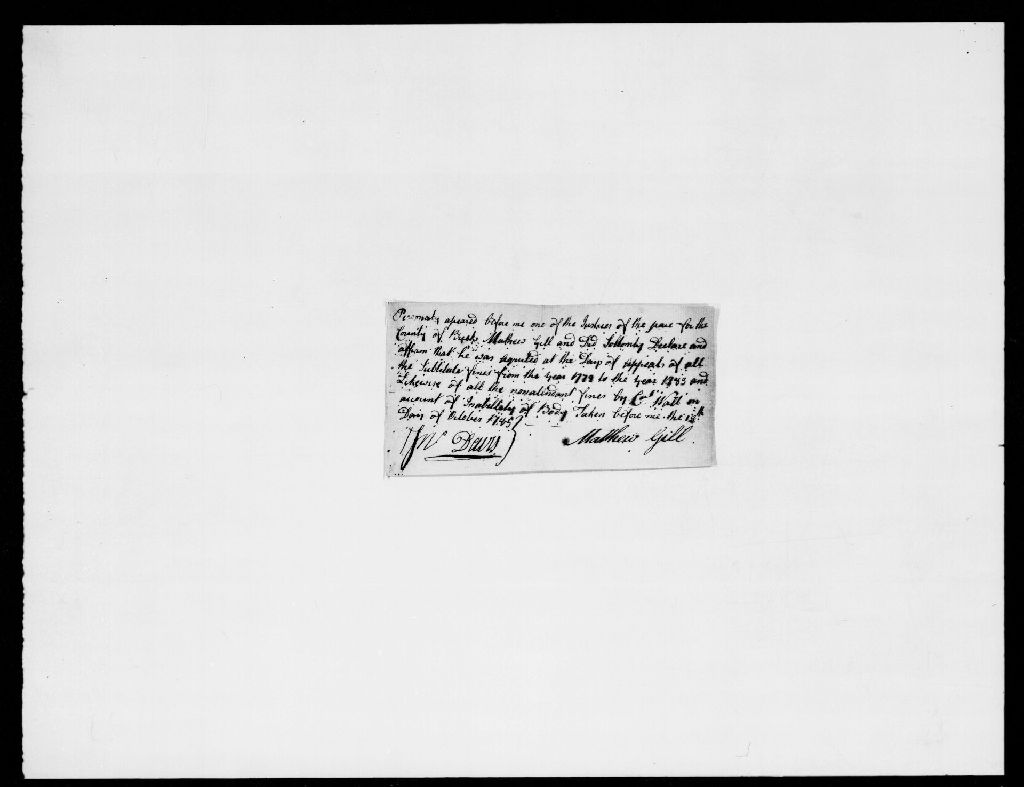 Personaly apeared before me one of the Justices of the peace for the
County of Bucks Mathew Gill and Did Sollomly Declare and
affirm that he was aquited at the Days of appeals of all
the Substitute fines from the year 1778 to the year 1783 and
Likewise of all the nonatendant fines by Col Hall on
account of Inabillaty of Body Taken before me the 12th
Day of October 1785
Jno Davis
Matthew Gill